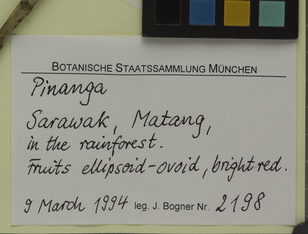 BOTANISCHE STAATSSAMMLUNG MÜNCHEN
Pinanga
Sarawak, Matang,
in the rainforest.
Fruits ellipsoid-ovoid, bright red.
9 March 1994 leg. J. Bogner Nr. 2198